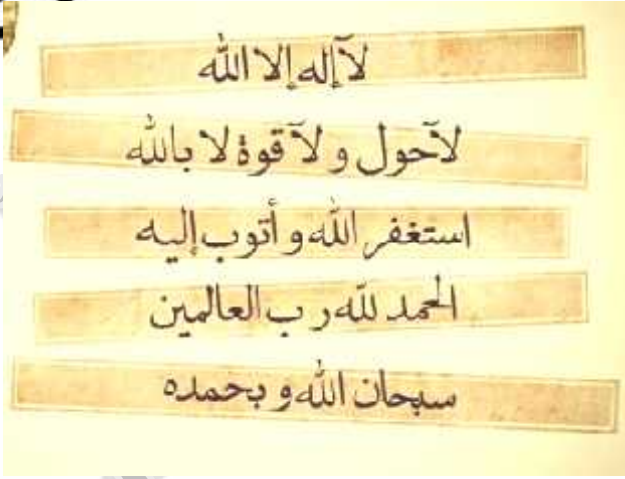 لآإله إلا الله
لآحول و لآ قوة لا بالله
استغفر الله و أتوب إليه
الحمد لله ر ب العالمين
سبحان الله و بحمده